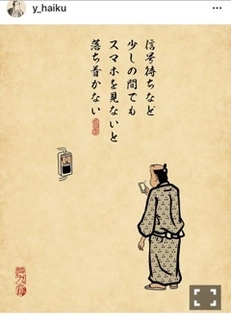 y_haiku
信号待ちなど
少しの間でも
スマホを見ないと
落ち着かない